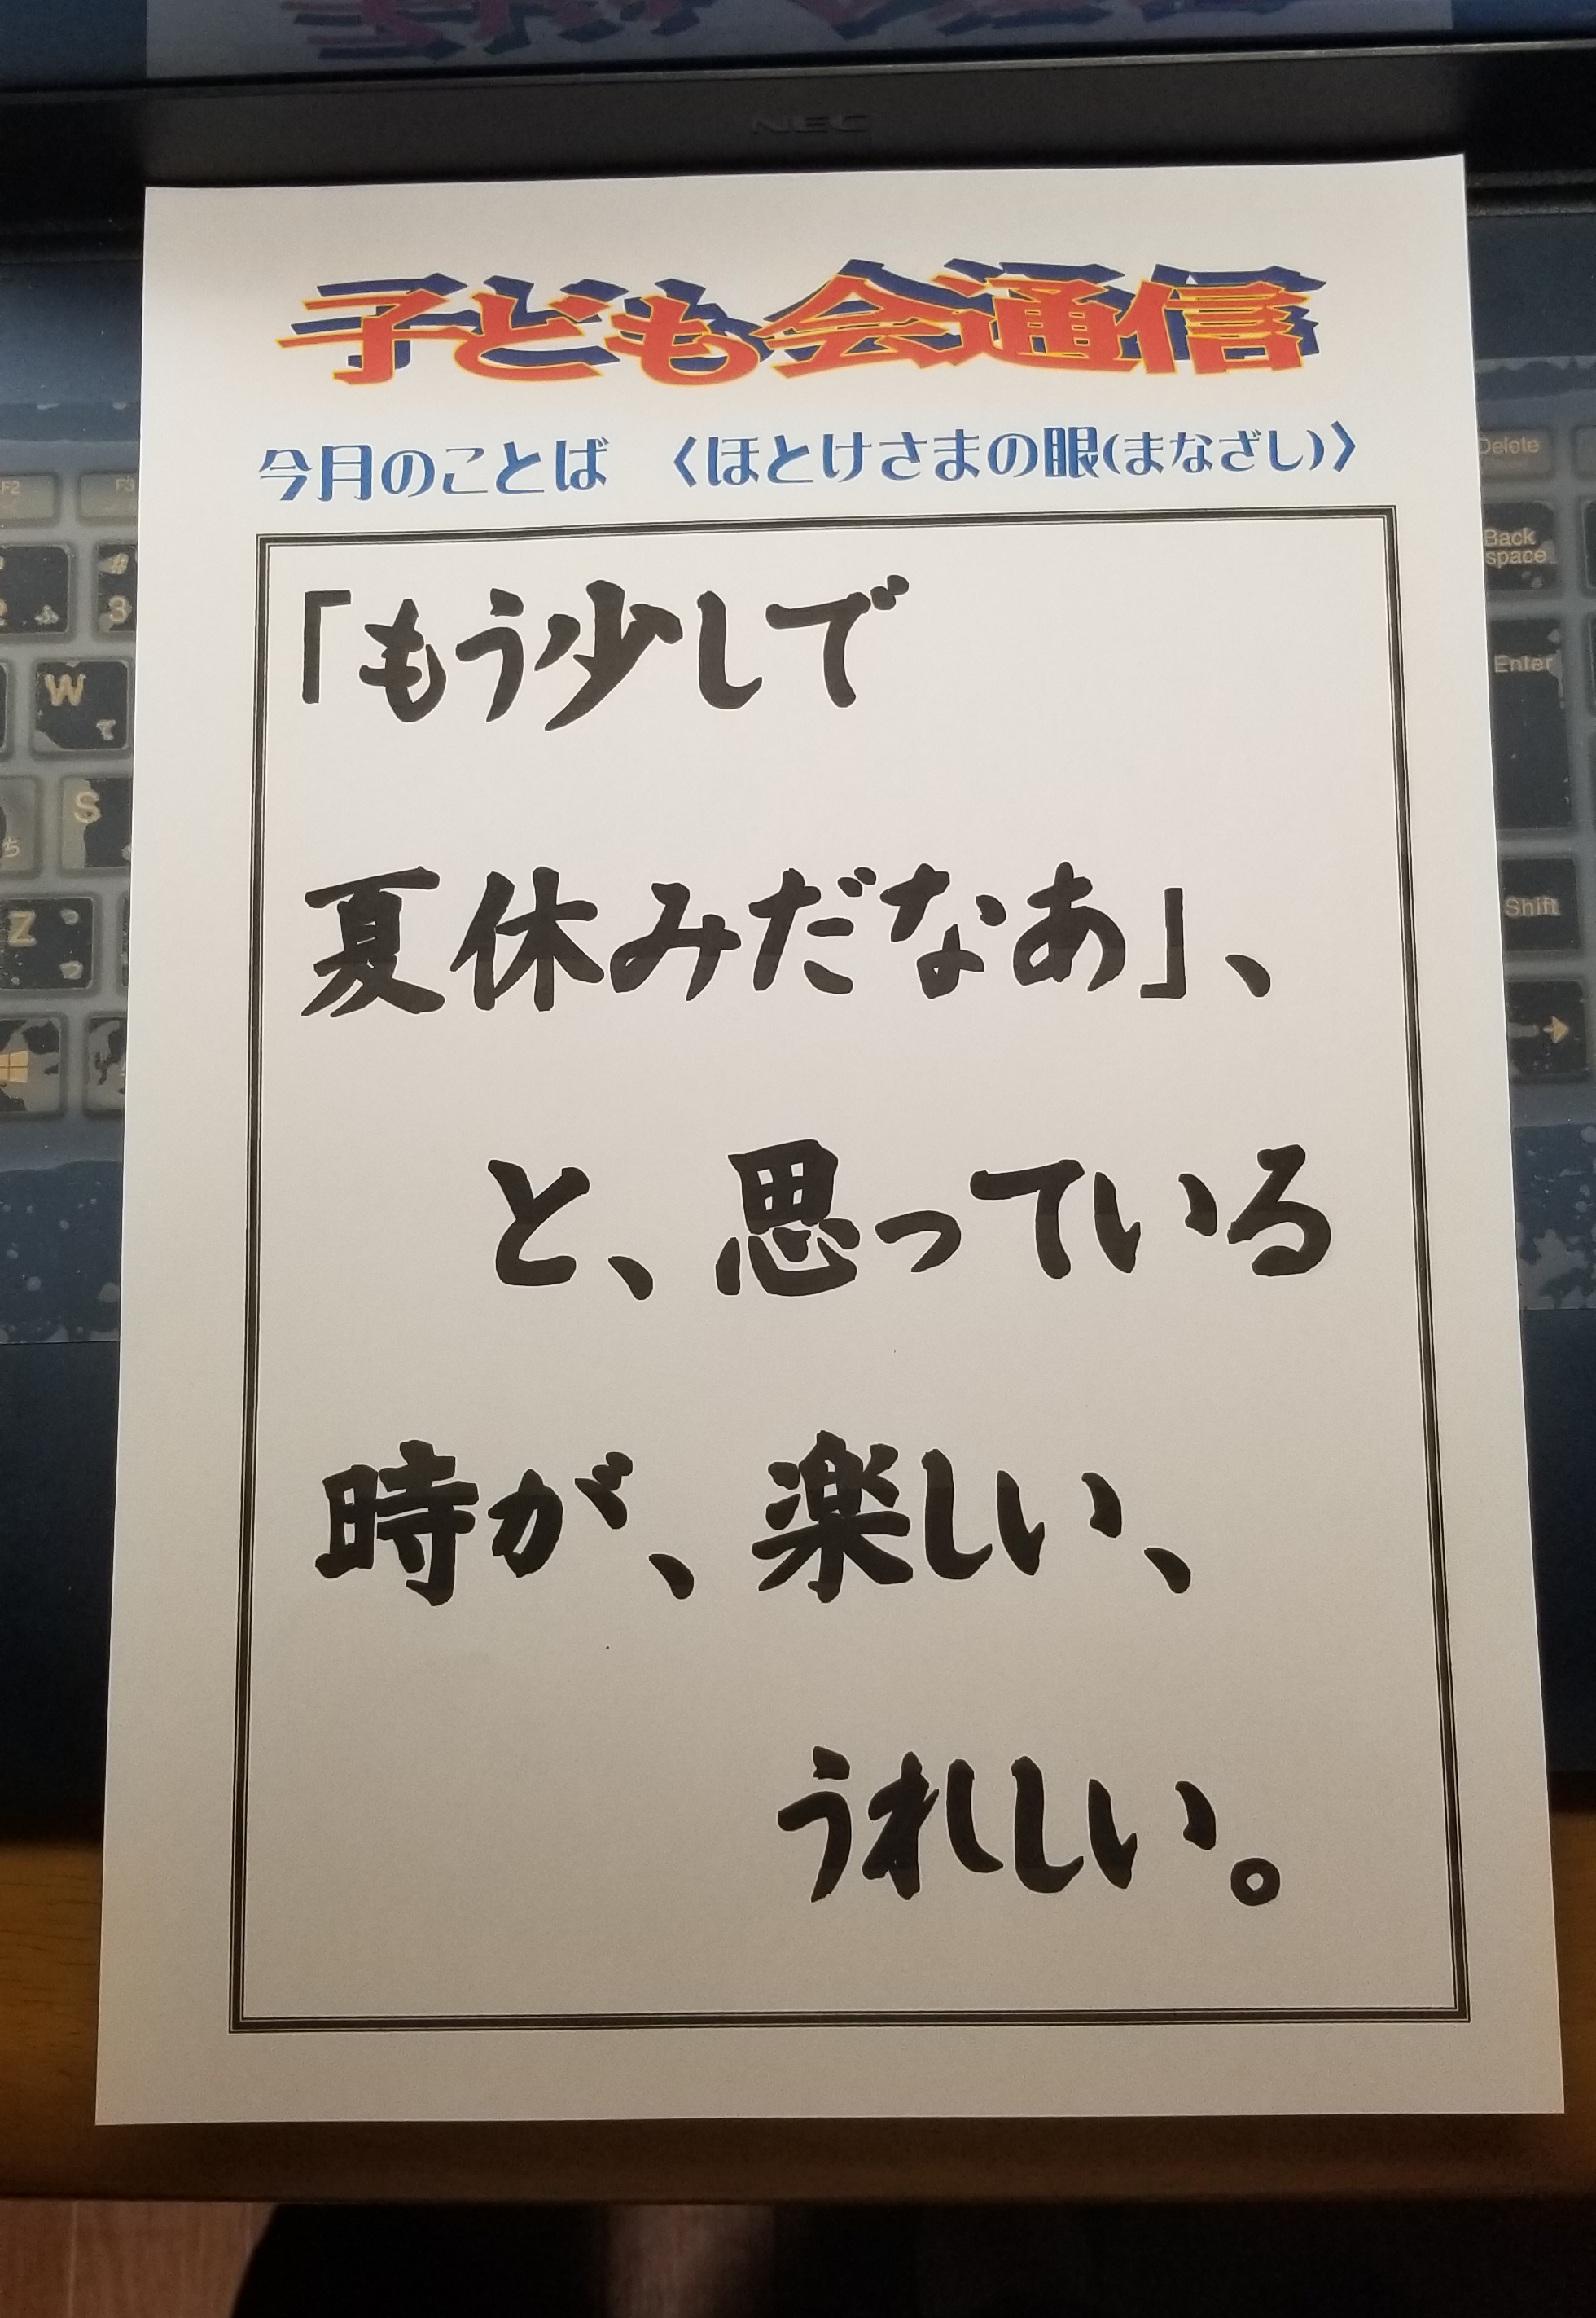 NEC
子ども会通信
今月のことば 〈ほとけさまの眼(まなざし)〉
「もう少しで
夏休みだなあ」、
と、思っている
時が、楽しい、
うれしい。
F2
F3
Delete
# 3
Back space
W て
Enter
S
ち
Z
Shift
→